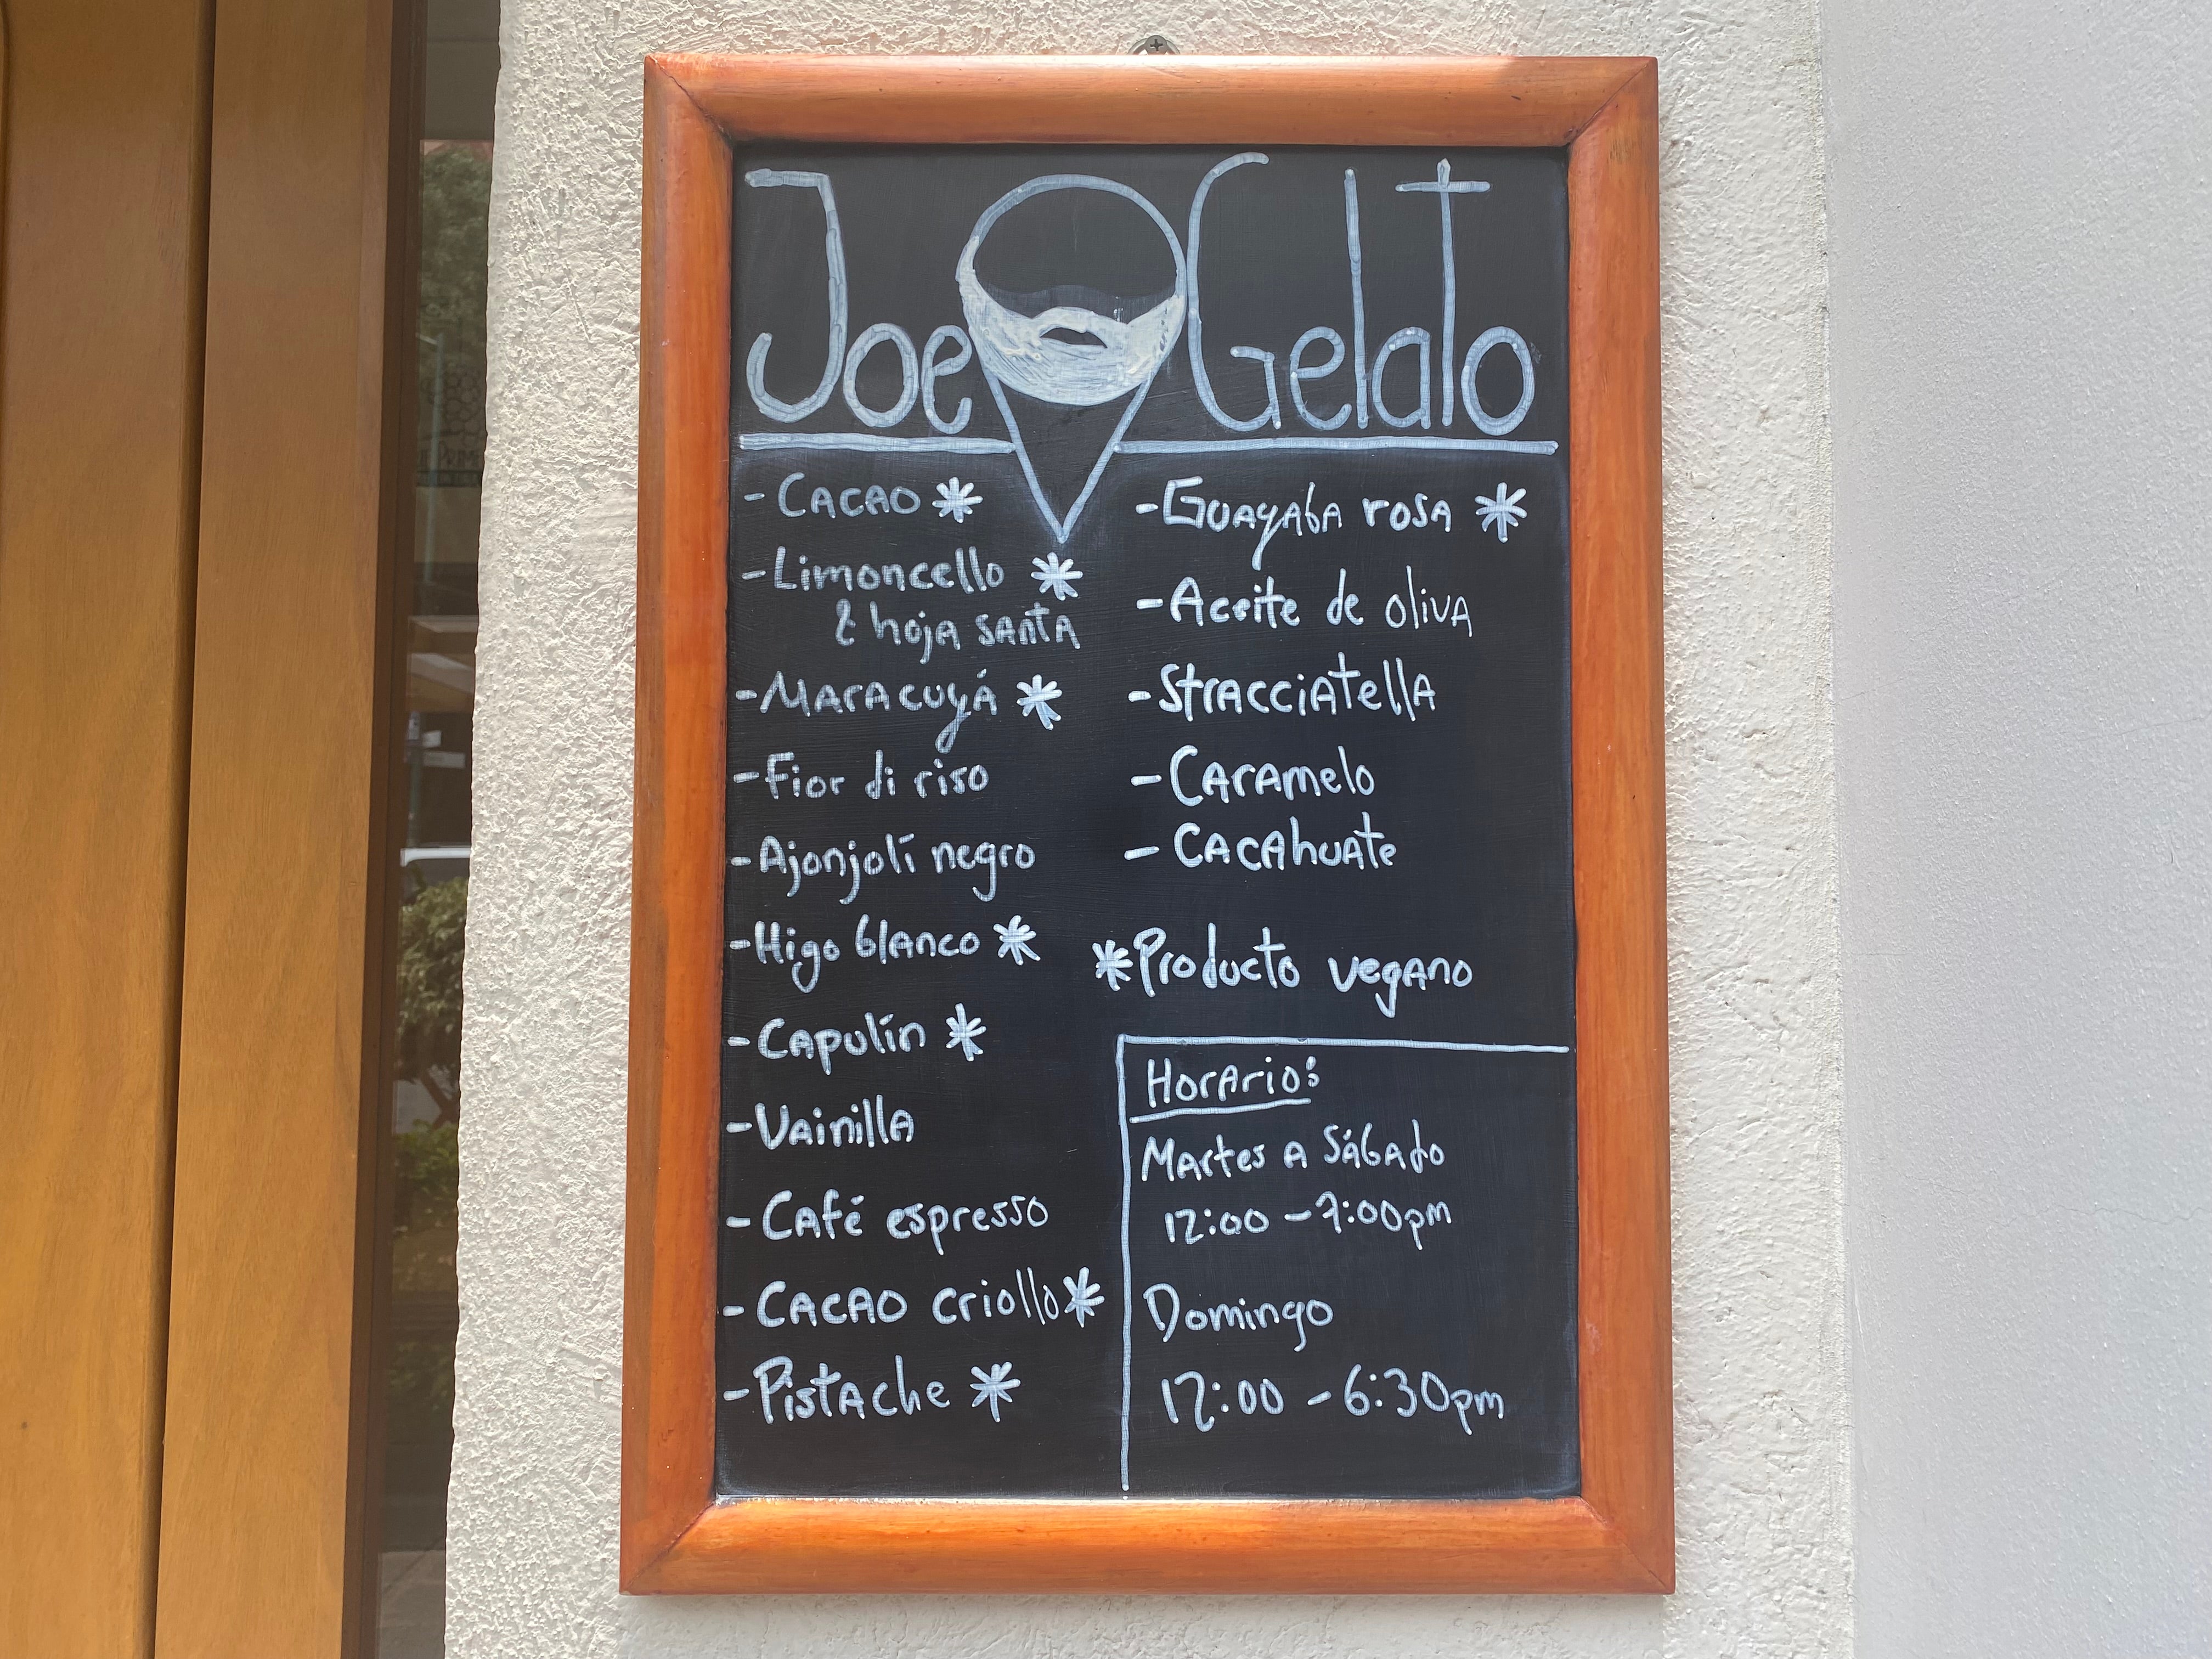 Joe Gelato
- Cacao *
- Limoncello *
& hoja santa
- Maracuyá *
- Fior di riso
- Ajonjolí negro
- Higo blanco *
- Capulín *
- Vainilla
- Café espresso
- Cacao criollo *
- Pistache *
- Guayaba rosa *
- Aceite de oliva
- Stracciatella
- Caramelo
- Cacahuate
* Producto vegano
Horario:
Martes a Sábado
12:00 - 7:00pm
Domingo
12:00 - 6:30pm